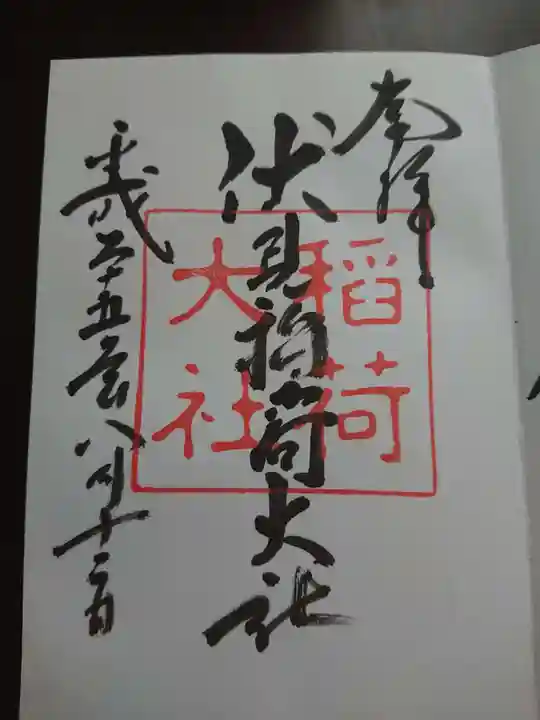 奉拝
伏見稲荷大社
稲荷
大社
平成二十五年八月十二日